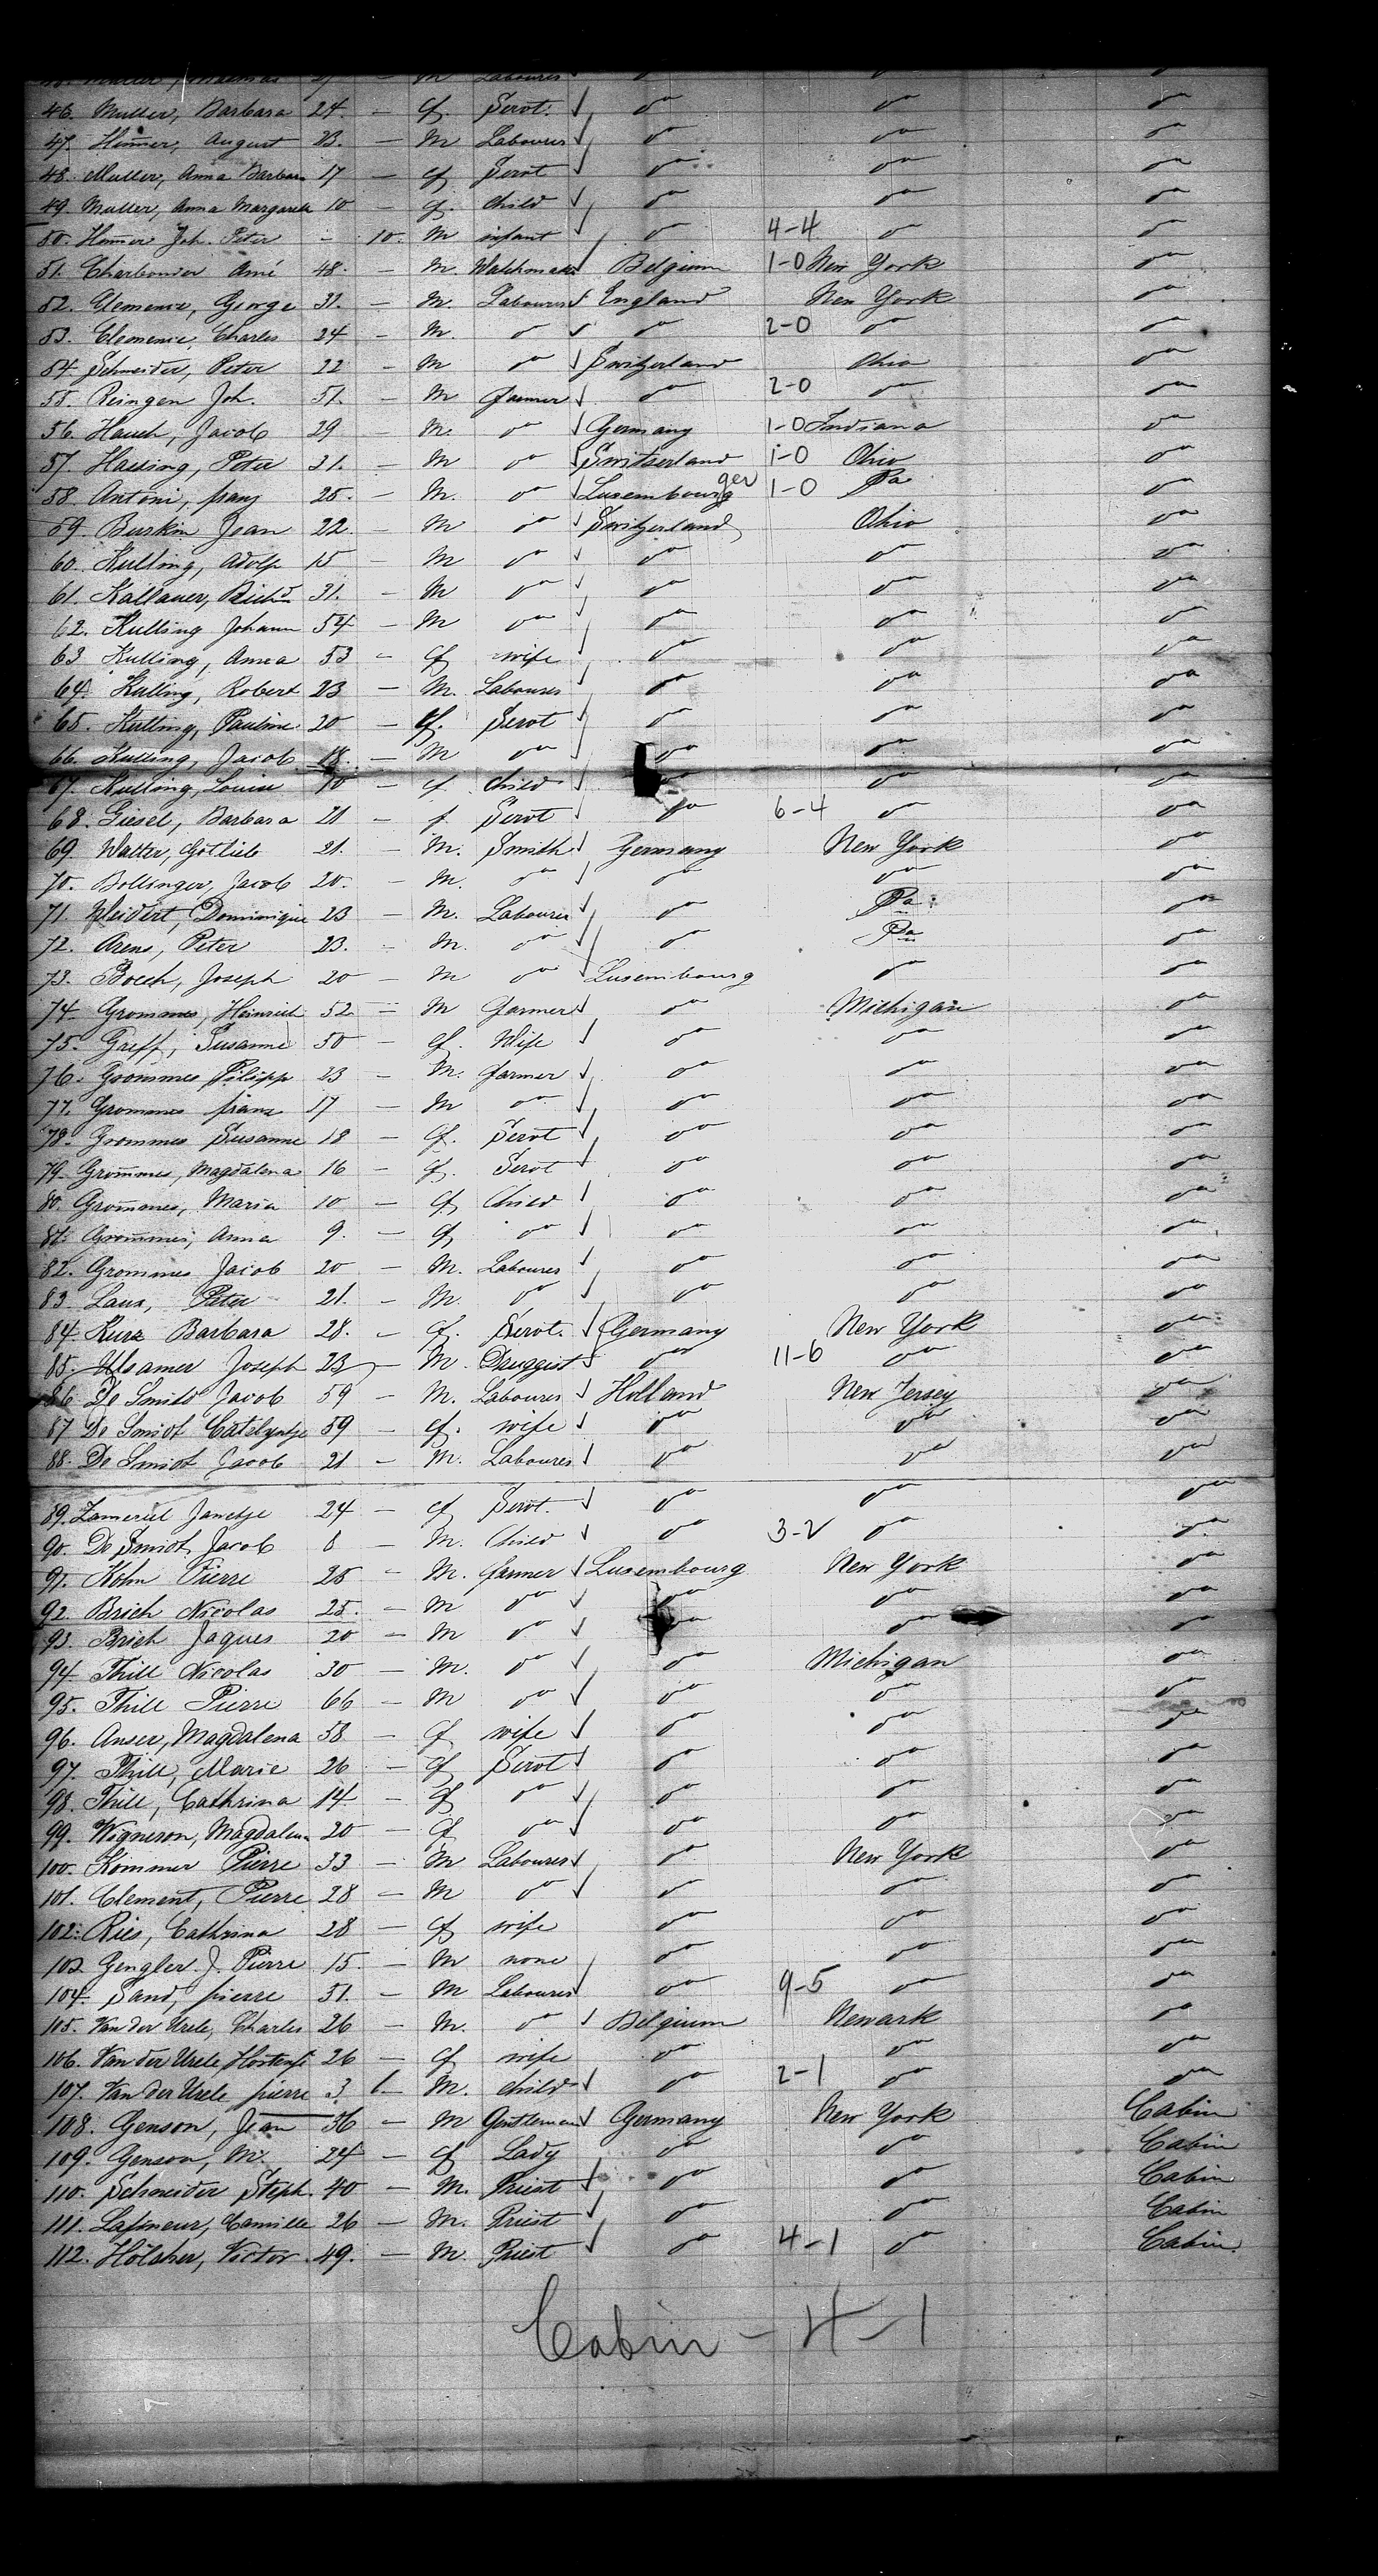 Muller, 27 - M Labourer do do do
46. Muller, Barbara 24. - f. Servt. do do do
47. Himmer, August 23. - M Labourer do do do
48. Muller, Anna Barbara 17 - f Servt do do do
49. Muller, Anna Margareta 10 - f. Child do do do
50. Himmer Joh. Peter - 10. M infant do 4-4 do do
51. Charbonier Amé 48. - M Watchmaker Belgium 1-0 New York do
52. Clemence, George 31. - M. Labourer England New York do
53. Clemence, Charles 24 - M. do do 2-0 do do
54. Schneider, Peter 22 - M do Switzerland Ohio do
55. Reingen Joh. 51. - M farmer do 2-0 do do
56. Hauch, Jacob 29 - M. do Germany 1-0 Indiana do
57. Hassing, Peter 31. - M do Switserland 1-0 Ohio do
58. Antoni, franz 25. - M. do Luxembourg ger 1-0 Pa do
59. Burkin Jean 22. - M do Switzerland Ohio do
60. Kulling, Adolf 15 - M do do do do
61. Kallauer, Richd 31. - M do do do do
62. Kulling Johann 54 - M do do do do
63 Kulling, Anna 53 - f wife do do do
64. Kulling, Robert 23 - M. Labourer do do do
65. Kulling, Pauline 20 - f. Servt do do do
66. Kulling, Jacob 18. - M do do do do
67. Kulling, Louise 10 - f child do do do
68. Giesel, Barbara 21 - f. Servt do 6-4 do do
69. Walter, Gottlieb 21. - M. Smith Germany New York do
70. Bollinger, Jacob 20. - M. do do do do
71. Weidert, Dominique 23 - M. Labourer do Pa do
72. Arens, Peter 23. - M. do do Pa do
73. Boech, Joseph 20 - M do Luxembourg do do
74. Grommes, Heinrich 52 - M farmer do Michigan do
75. Greff, Susanne 50 - f. Wife do do do
76. Grommes Philipp 23 - M. farmer do do do
77. Grommes franz 17 - M do do do do
78. Grommes Susanne 18 - f. Servt do do do
79. Grommes, Magdalena 16 - f. Servt do do do
80. Grommes, Maria 10 - f Child do do do
81. Grommes, Anna 9. - f do do do do
82. Grommes Jacob 20 - M. Labourer do do do
83. Laux, Peter 21. - M. do do do do
84. Kurz Barbara 28. - f. Servt. Germany New York do
85. Ulsamer Joseph 23 - M. Druggist do 11-6 do do
86 De Smidt Jacob 59 - M. Labourer Holland New Jersey do
87 De Smidt Catelyntje 59 - f. wife do do do
88. De Smidt Jacob 21 - M. Labourer do do do
89. Janetje 24 - f Servt. do do do
90. De Smidt Jacob 8 - M. Child do 3-2 do do
91. Kohn Pierre 25 - M. farmer Luxembourg New York do
92. Brich Nicolas 25. - M do do do do
93. Brich Jaques 20 - M do do do do
94. Thill Nicolas 30 - M. do do Michigan do
95. Thill Pierre 66 - M do do do do
96. Anser, Magdalena 58 - f wife do do do
97. Thill, Marie 26 - f Servt do do do
98. Thill, Cathrina 14 - f do do do do
99. Wigneron, Magdalena 20 - f do do do do
100. Kommer Pierre 33 - M Labourer do New York do
101. Clement, Pierre 28 - M do do do do
102. Ries, Cathrina 28 - f wife do do do
103. Gengler J. Pierre 15. - M none do do do
104. Sand, pierre 31. - M Labourer do 9-5 do do
105. Van der Urele, Charles 26 - M. do Belgium Newark do
106. Van der Urele, Hortense 26 - f wife do do do
107. Van der Urele pierre 3 6 - M. child do 2-1 do do
108. Genson, Jean 36 - M Gentleman Germany New York Cabin
109. Genson, M. 24 - f Lady do do Cabin
110. Schneider Steph. 40 - M. Priest do do Cabin
111. Lafineur, Camille 26 - M. Priest do do Cabin
112. Hölscher, Victor 49. - M. Priest do 4-1 do Cabin
Cabin - 4-1